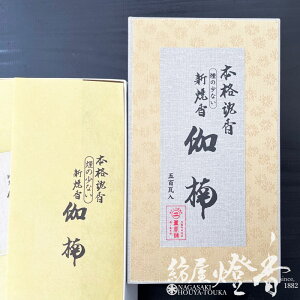 本格銘香
煙の少ない
新焼香
伽楠
五百瓦入
薫寿堂
本格銘香
煙の少ない
新焼香
伽楠
紡屋燈香
since 1882
NAGASAKI
HOUYA-TOUKA